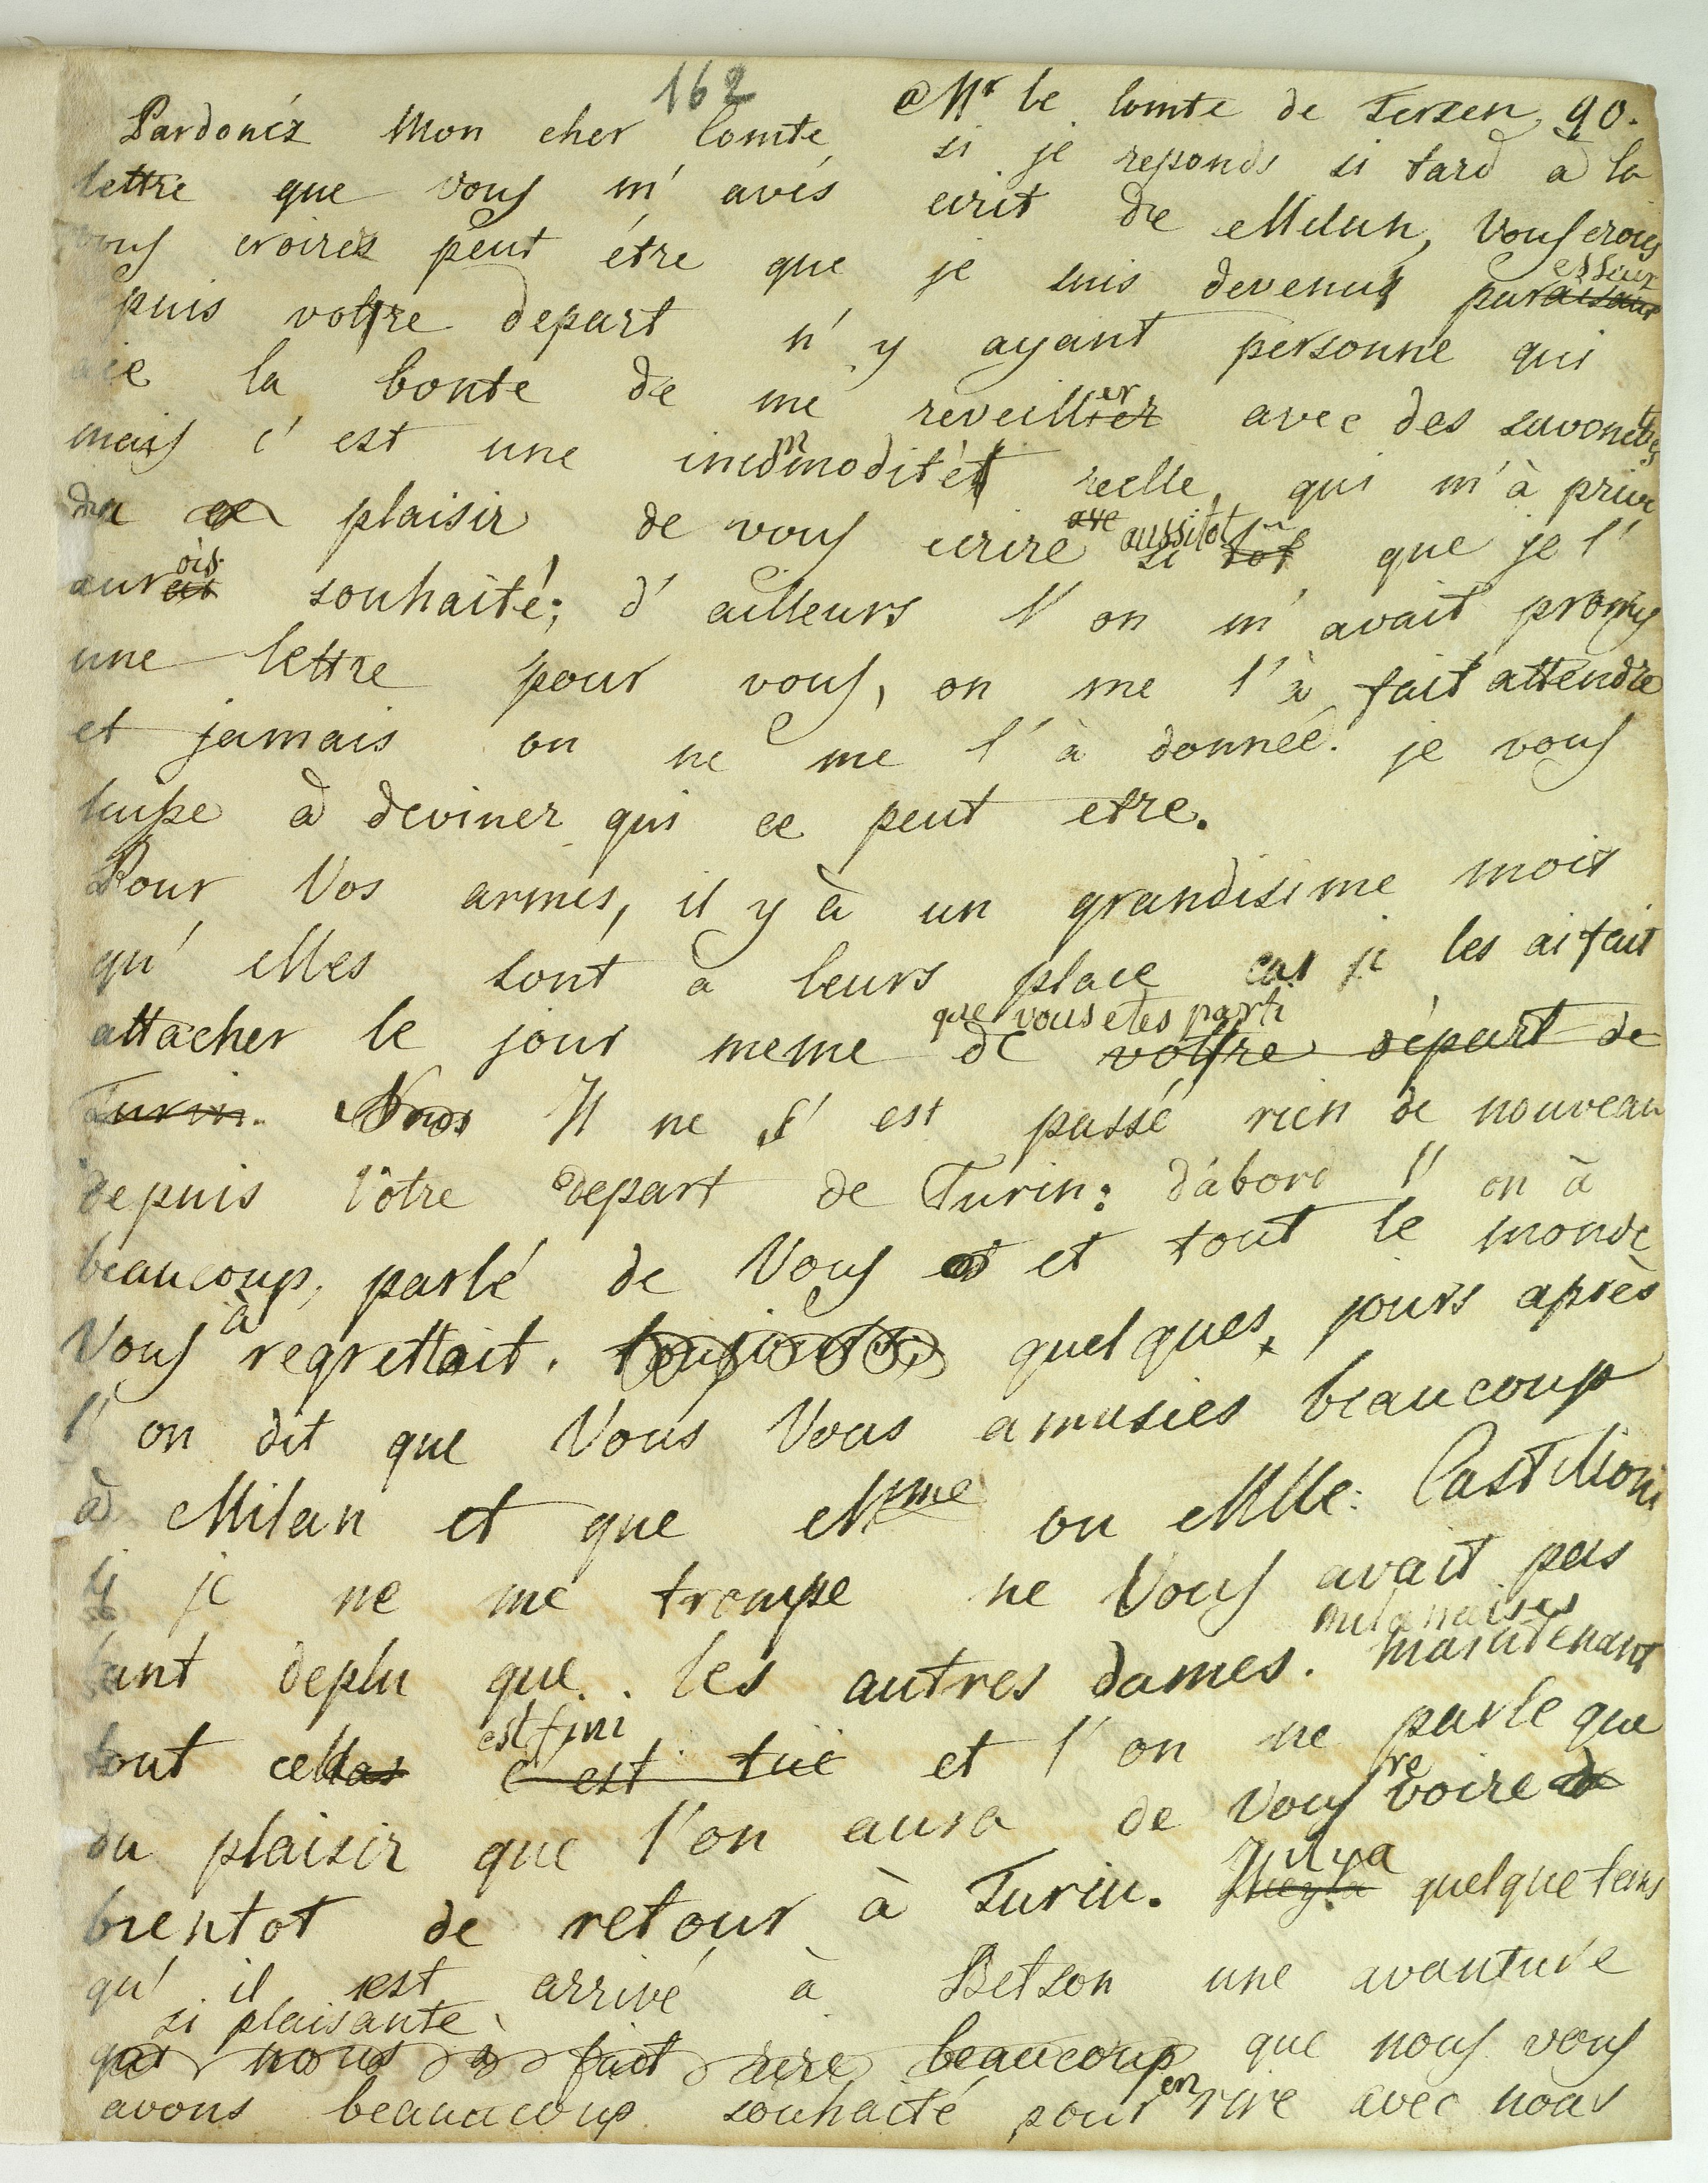 162
a Mr le Comte de Fersen 90.
Pardonéz Mon cher Comte si je reponds si tard a la
lettre que vous m'avés ecrit de Milan, Vous croies
vous croirés peut étre que je suis devenus paresseux
puis votre depart n'y ayant personne qui
aie la bonté de me reveiller avec des savonettes
mais c'est une incommodité reelle, qui m'à privé
du plaisir de vous ecrire aussitot que je l'
aurois souhaité; d'ailleurs l'on m'avait promis
une lettre pour vous, on me l'à fait attendre
et jamais on ne me l'à donnée. je vous
laisse à deviner qui ce peut etre.
Pour Vos armes, il y à un grandisime mois
qu'elles sont à leurs place car je les ai fait
attacher le jour meme que vous etes parti
de votre départ de
Turin. Nous Il ne s'est passé rien de nouveau
depuis Vôtre depart de Turin: d'abord l'on à
beaucoup parlé de Vous et tout le monde
Vous à regrettait. toujours quelques jours après
l'on dit que Vous Vous amusies beaucoup
à Milan et que Mme ou Mlle: Castillioni
si je ne me trompe ne Vous avait pas
milanaises
tant deplu que les autres dames. maintenant
est fini
tout cellas c'est tüé et l'on ne parle que
du plaisir que l'on aura de Vous revoire
bientot de retour à Turin. Il y a quelque tems
qu'il est arrivé à Betson une avanture
si plaisante
qui nous a fait rire beaucoup que nous vous
avons beauucoup souhaité pour en rire avec nous